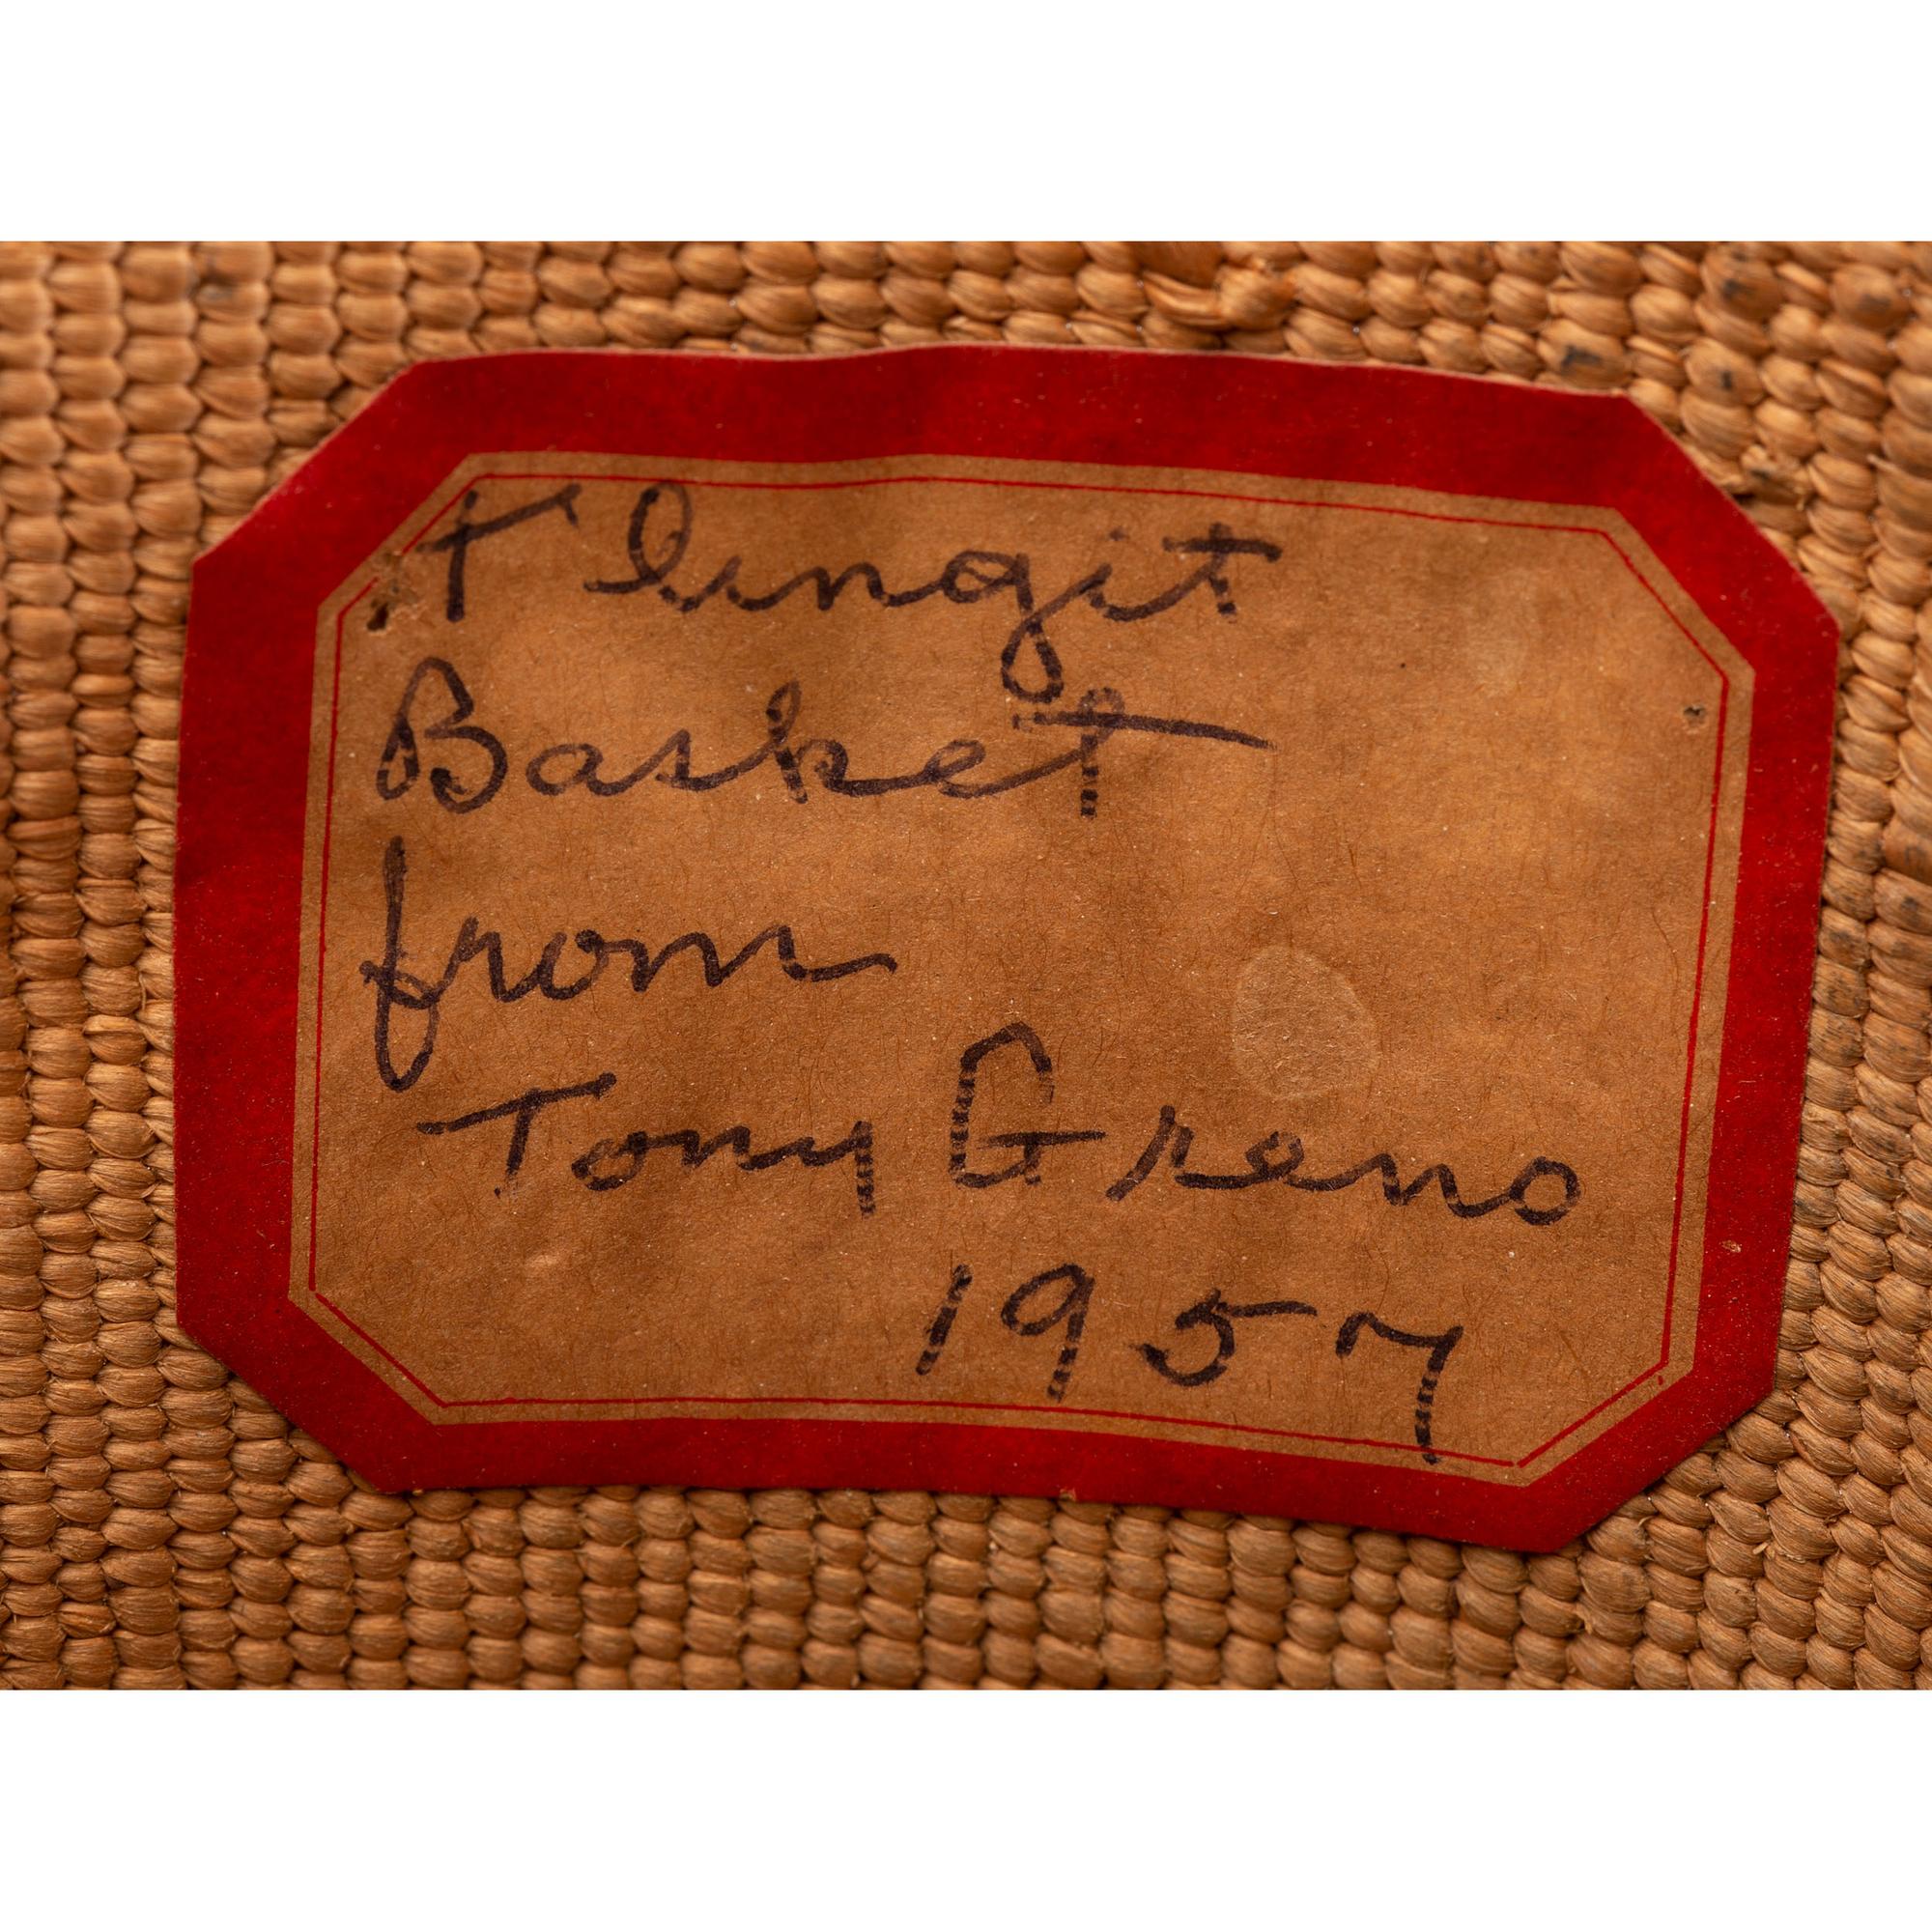 T'lingit
Basket
from
Tony Greno
1957